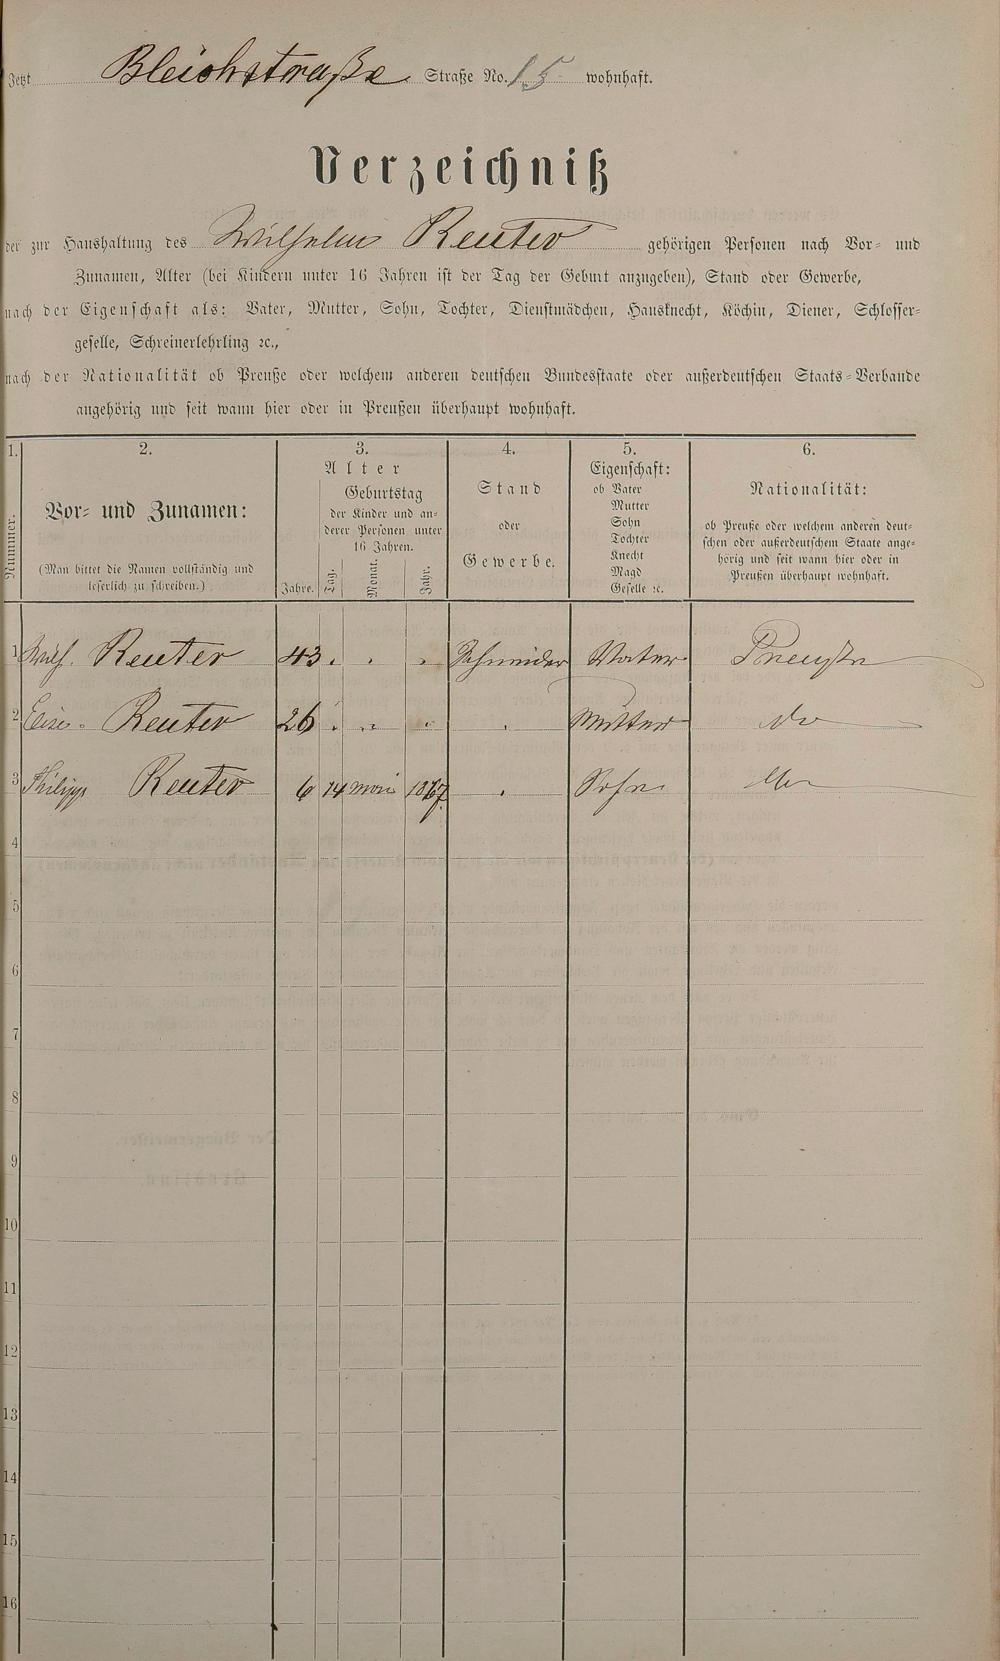 Jetzt Bleichstraße Straße No. 15 wohnhaft.
Verzeichniß
der zur Haushaltung des Wilhelm Reuter gehörigen Personen nach Vor- und
Zunamen, Alter (bei Kindern unter 16 Jahren ist der Tag der Geburt anzugeben), Stand oder Gewerbe,
nach der Eigenschaft als: Vater, Mutter, Sohn, Tochter, Dienstmädchen, Hausknecht, Köchin, Diener, Schlosser-
geselle, Schreinerlehrling ꝛc.,
nach der Nationalität ob Preuße oder welchem anderen deutschen Bundesstaate oder außerdeutschen Staats-Verbande
angehörig und seit wann hier oder in Preußen überhaupt wohnhaft.
1.
Nummer.
2.
Vor- und Zunamen:
(Man bittet die Namen vollständig und
leserlich zu schreiben.)
3.
Alter
Jahre.
Geburtstag
der Kinder und an-
derer Personen unter
16 Jahren.
Tag. Monat. Jahr.
4.
Stand
oder
Gewerbe.
5.
Eigenschaft:
ob Vater
Mutter
Sohn
Tochter
Knecht
Magd
Geselle ꝛc.
6.
Nationalität:
ob Preuße oder welchem anderen deut-
schen oder außerdeutschem Staate ange-
hörig und seit wann hier oder in
Preußen überhaupt wohnhaft.
1 Wilh. Reuter 43 Schneider Vater Preuße
2 Elise Reuter 26 Mutter do
3 Philipp Reuter 6 14 Mai 1867 Sohn
4
5
6
7
8
9
10
11
12
13
14
15
16